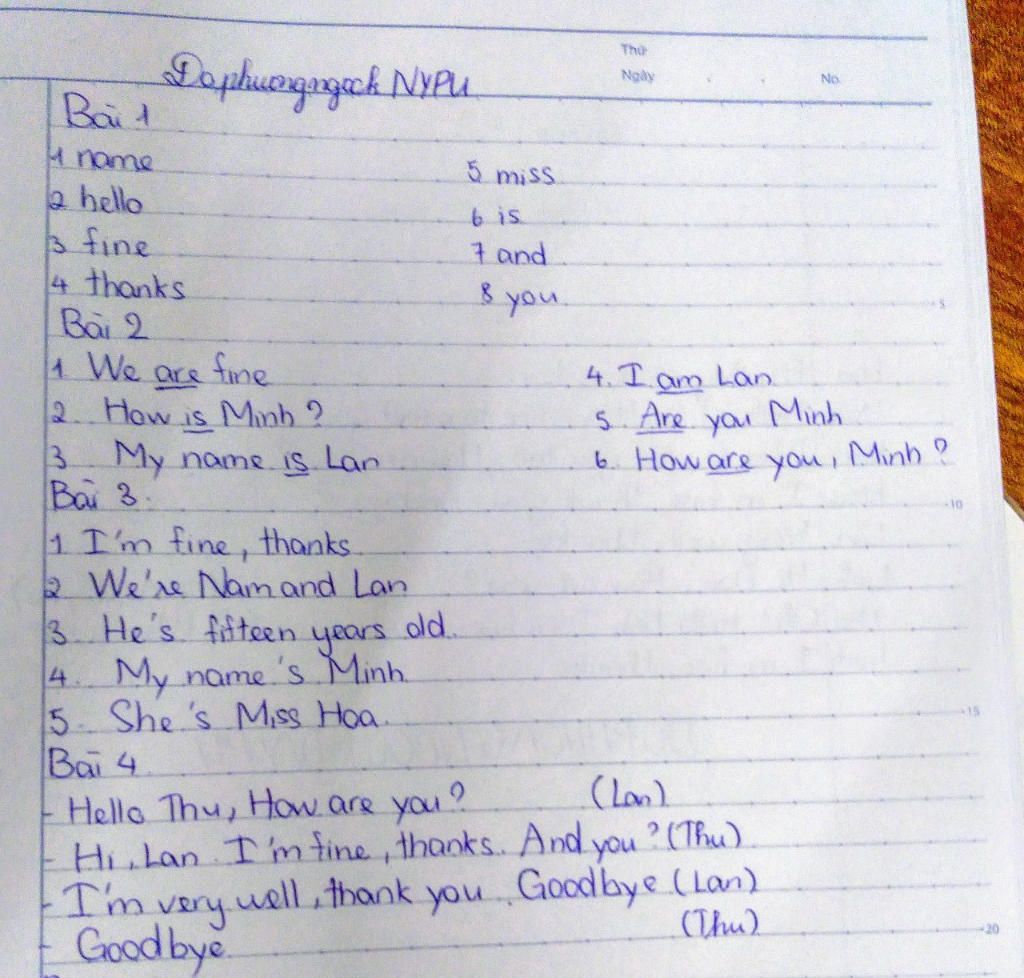 Thứ
Ngày No.
Daphuongngock NYPU
Bài 1
1 name 5 miss
2 hello 6 is
3 fine 7 and
4 thanks 8 you
5
Bài 2
1 We are fine 4. I am Lan
2. How is Minh? 5 Are you Minh
3 My name is Lan 6. How are you, Minh?
Bài 3.
10
1 I'm fine, thanks
2 We're Nam and Lan
3 He's fifteen years old.
4. My name's Minh
5. She's Miss Hoa.
15
Bài 4
- Hello Thu, How are you? (Lan)
- Hi, Lan. I'm fine, thanks. And you? (Thu)
- I'm very well, thank you. Goodbye (Lan)
- Goodbye. (Thu)
20